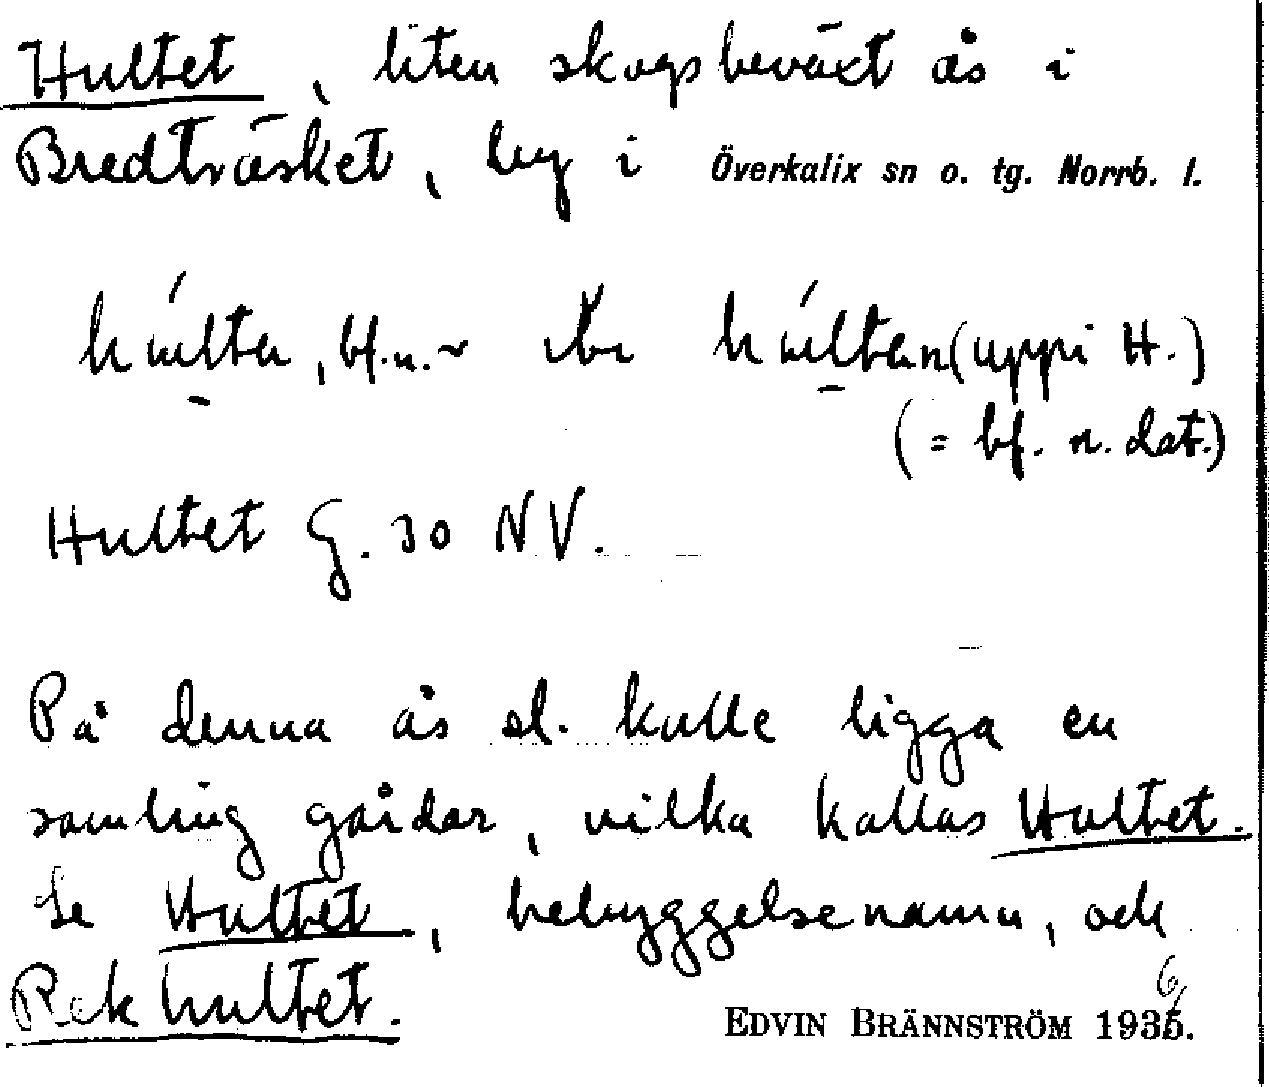 Hultet, liten skogsbeväxt ås i
Bredträsket, by i Överkalix sn o. tg. Norrb. l.
bf. n. ~ (uppi H.)
(= bf. n. dat.)
Hultet G. 30 NV.
På denna ås el. kulle ligga en
samling gårdar, vilka kallas Hultet.
Se Hultet, bebyggelsenamn, och
Rekhultet.
EDVIN BRÄNNSTRÖM 1936.